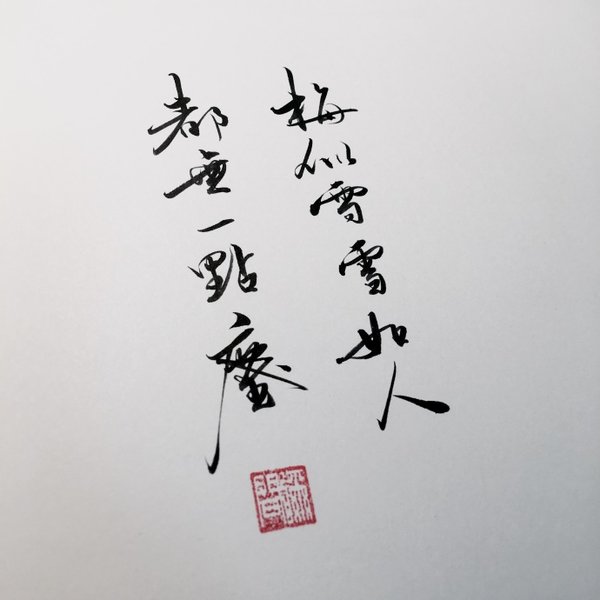 梅似雪雪如人
都無一點塵